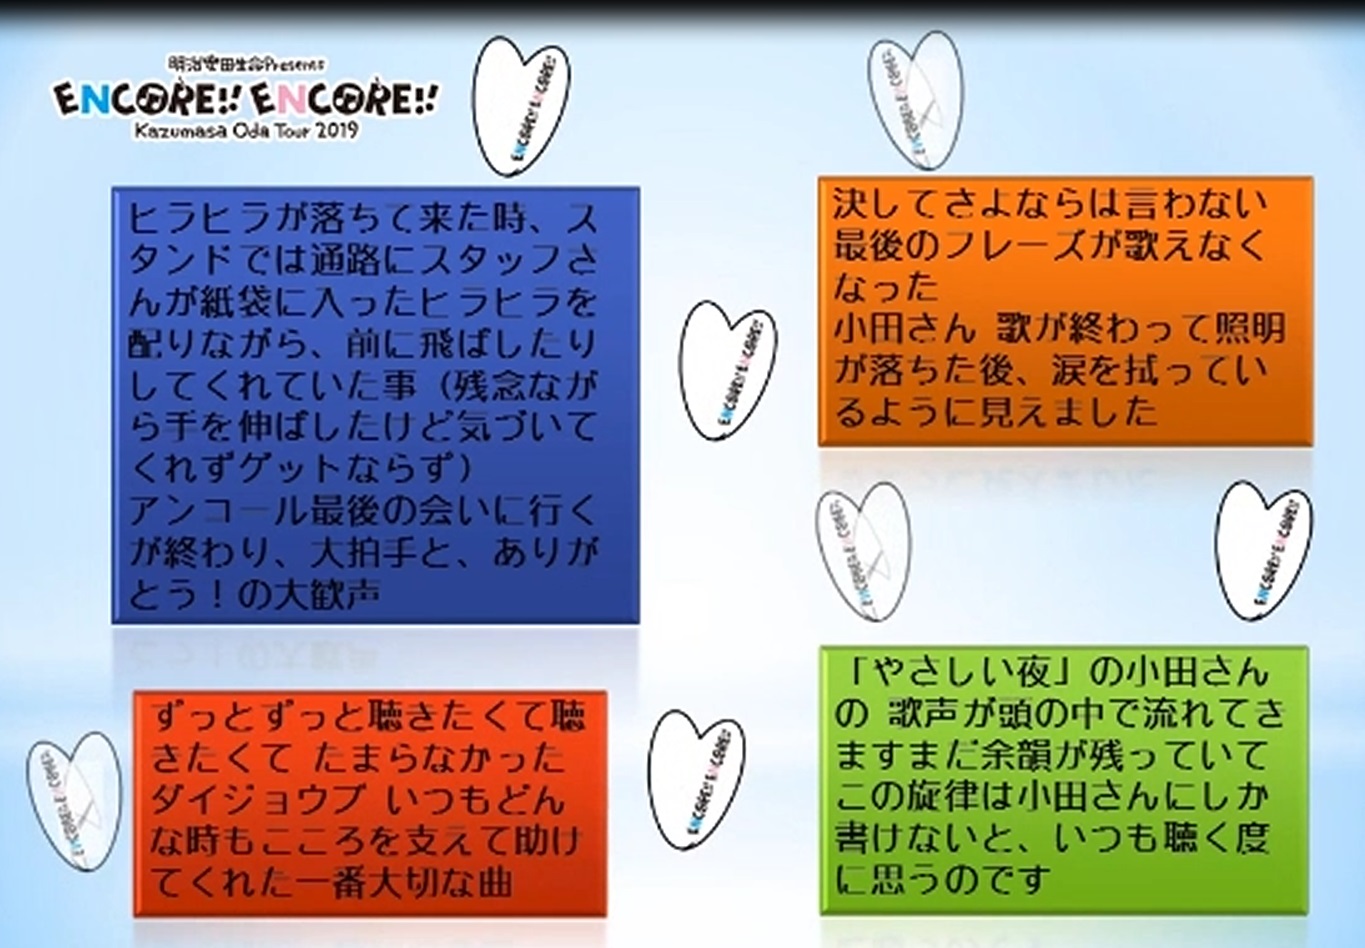 明治安田生命Presents
ENCORE!! ENCORE!!
Kazumasa Oda Tour 2019
ENCORE!! ENCORE!!
ENCORE!! ENCORE!!
ヒラヒラが落ちて来た時、ス
タンドでは通路にスタッフさ
んが紙袋に入ったヒラヒラを
配りながら、前に飛ばしたり
してくれていた事（残念なが
ら手を伸ばしたけど気づいて
くれずゲットならず）
アンコール最後の会いに行く
が終わり、大拍手と、ありが
とう！の大歓声
決してさよならは言わない
最後のフレーズが歌えなく
なった
小田さん 歌が終わって照明
が落ちた後、涙を拭ってい
るように見えました
ENCORE!! ENCORE!!
ENCORE!! ENCORE!!
ENCORE!! ENCORE!!
ずっとずっと聴きたくて聴
きたくて たまらなかった
ダイジョウブ いつもどん
な時もこころを支えて助け
てくれた一番大切な曲
「やさしい夜」の小田さん
の 歌声が頭の中で流れてき
ますまだ余韻が残っていて
この旋律は小田さんにしか
書けないと、いつも聴く度
に思うのです
ENCORE!! ENCORE!!
ENCORE!! ENCORE!!